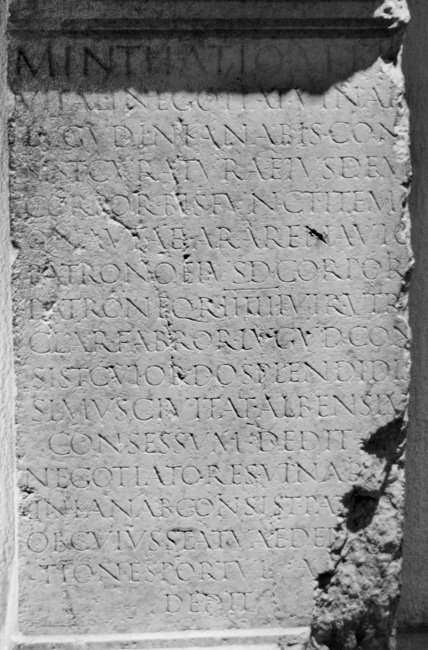 MINTHATIONI
VITALI NEGOTIAT VINAR
LVGVD IN KANABIS CON
SIST CVRATVRA EIVSD FV
CORPORIB IS FVNCT ITEM
ONAVTAE ARARE NAVIG
PATRONO EIVSD CORPOR
PATRON EQ R IIIIII VIR VTR
CLAR FABROR LVGVD CON
SIST CVI ORDO SPLENDIDI
SIMVS CIVITAT ALBENSIV
CONSESSVM DEDIT
NEGOTIATORES VINAR
IN KANAB CONSIST PA
OB CVIVS STATVAE DE
TIONE SPORTVL
DEDIT